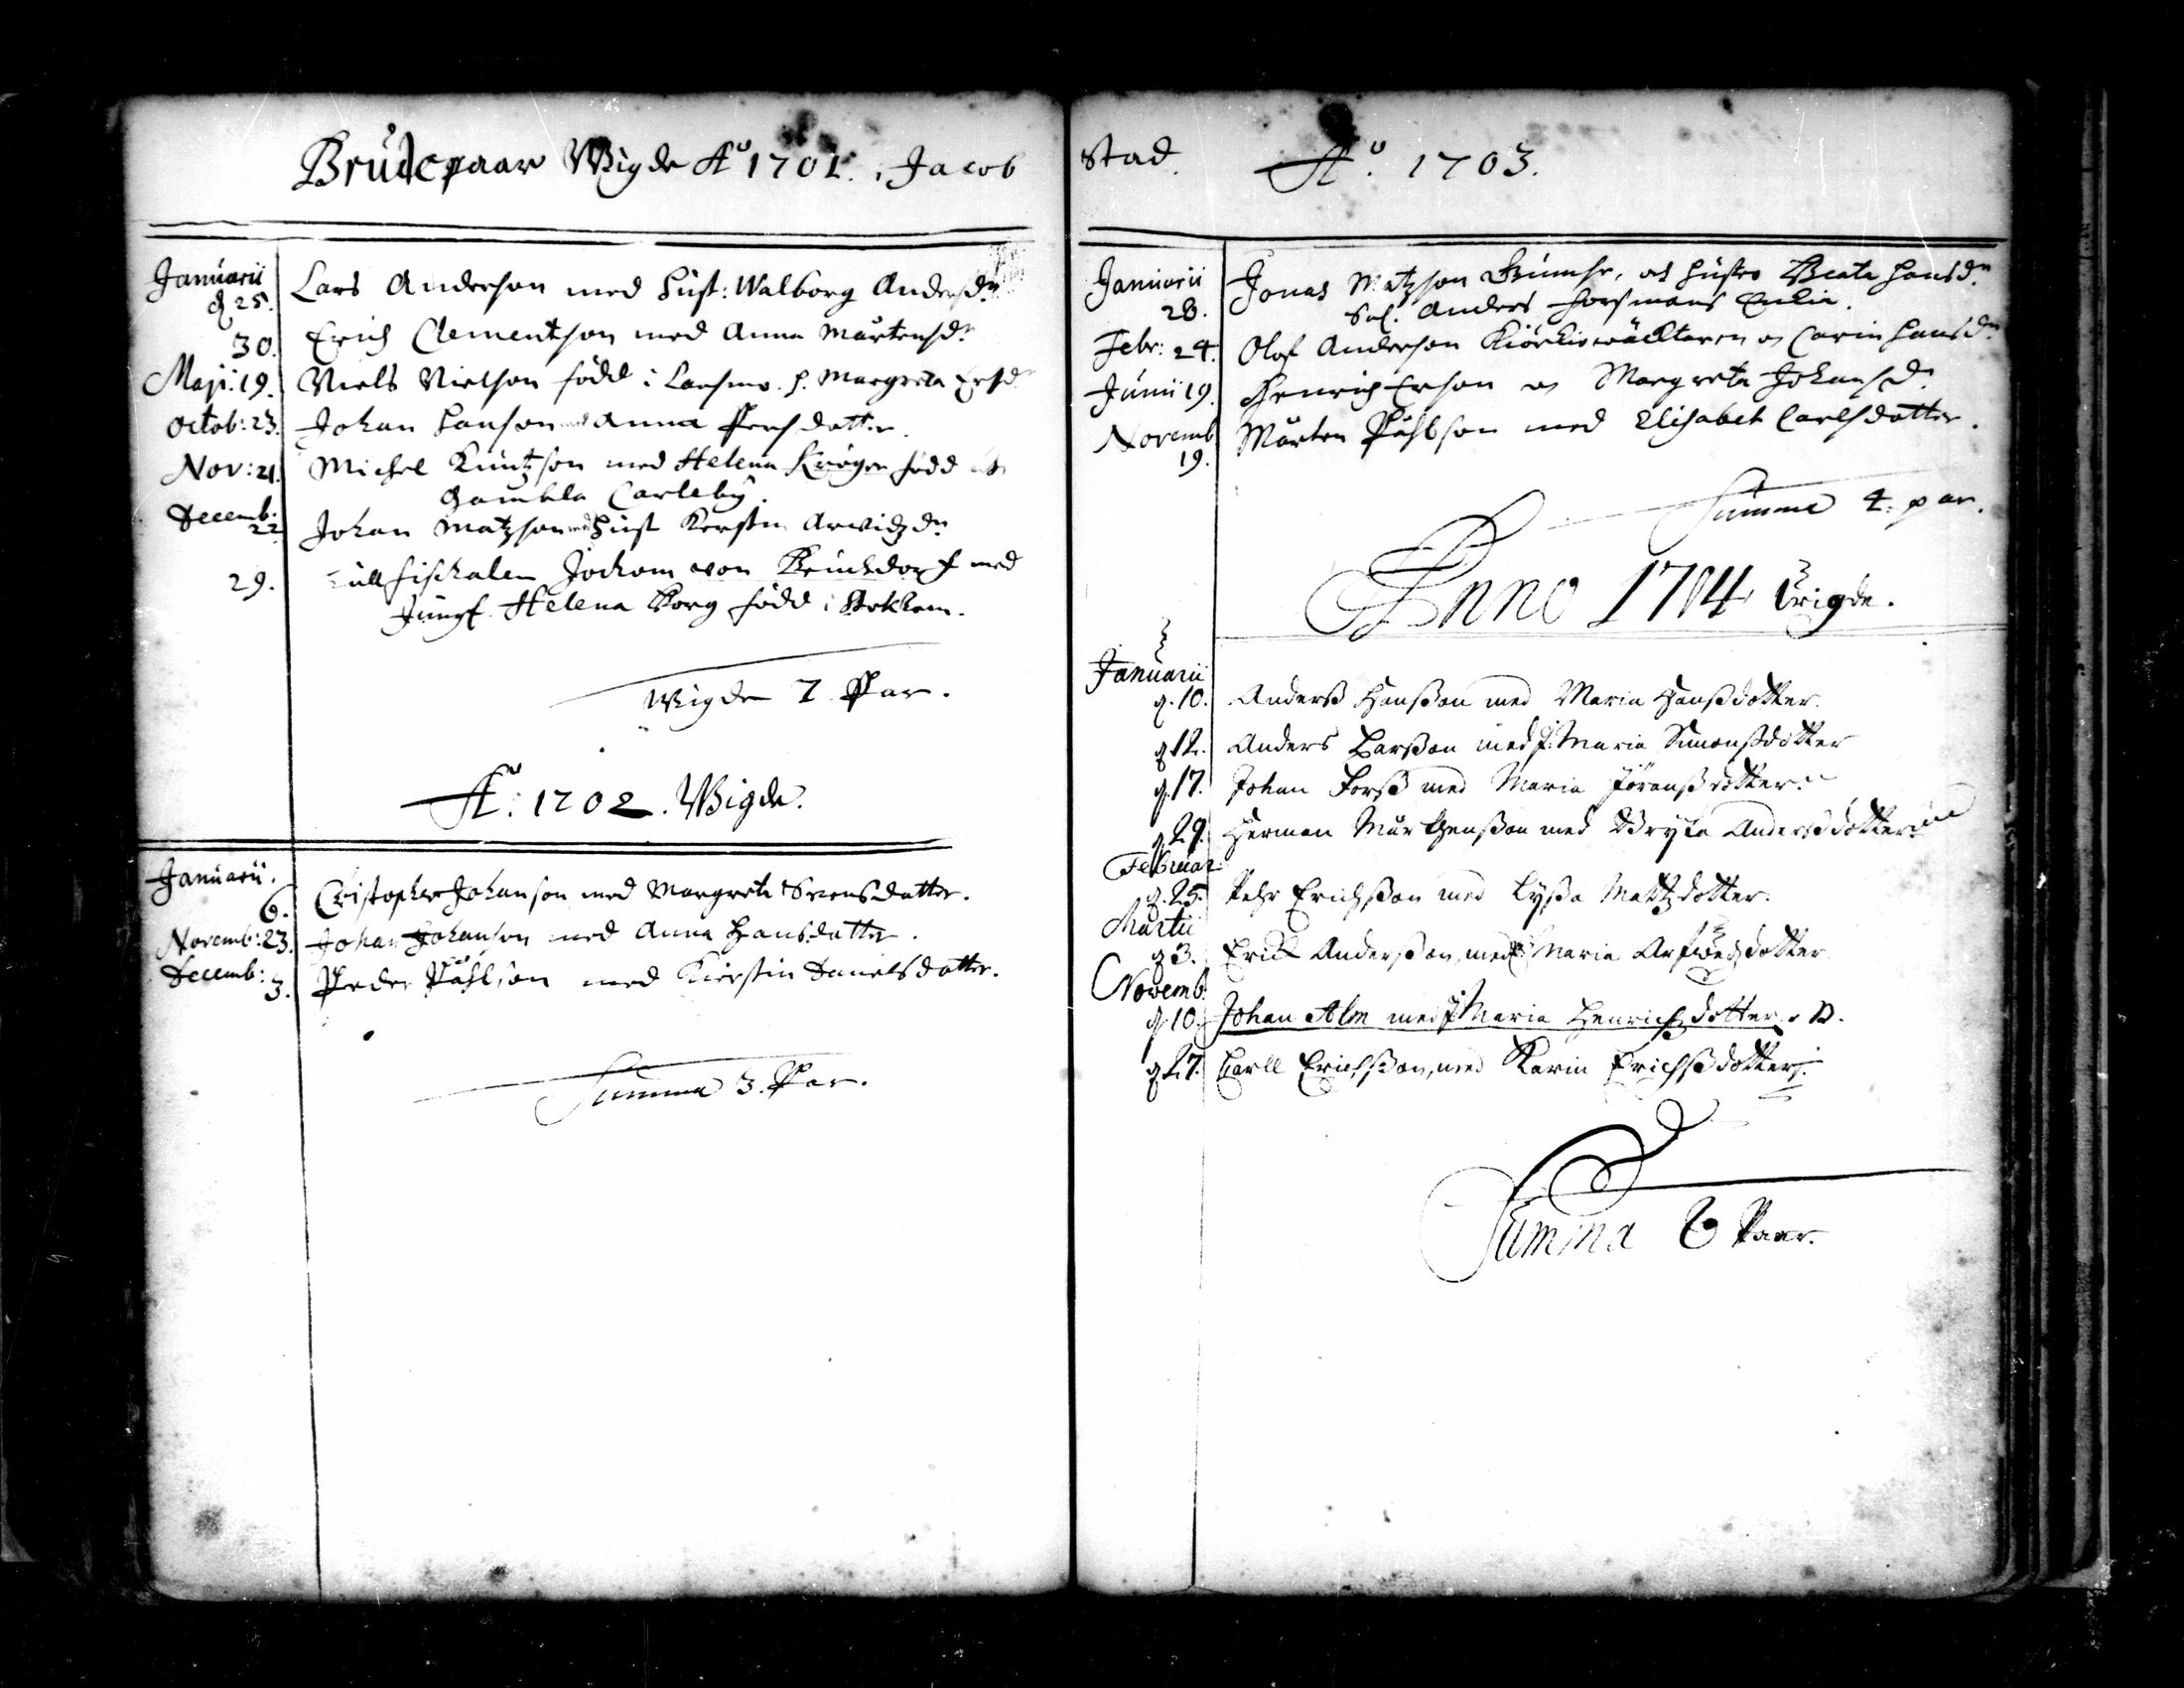 Brudepaar Wigde Aº 1701. i Jacob
Januarii
d 25. Lars Anderson med Hust: Walborg Andersdr
30. Erich Clementson med Anna Mårtensdr
Maji: 19. Niels Nielson född i Larsmo. h. Margreta Ersdr
Octob: 23. Johan Hanson med Anna Persdatter.
Nov: 21. Michel Kuntzson med Helena Kröger född
Gambla Carleby.
Decemb: 22 Johan Matzson med Hust Kerstin Arwidzdr
29. Tullfischalen Jochom von med
Jungf. Helena Borg född i Stokhom.
Wigde 7 Par.
Aº: 1702. Wigde.
Januarii.
6. Christopher Johanson med Margreta Svensdatter.
Novemb: 23. Johan Johanson med Anna Hansdatter.
Decemb: 3. Peder Påhlson med Kierstin Danielsdatter.
Summa 3. Par.
Stad. Aº. 1703.
Januarii
28. Jonas Matzson och hustro Beata Hansdr
Sal. Anders Forsmans Enkia.
Febr: 24. Olof Anderson Kiörkiowäcktaren och Carin Hansdr
Junii 19. Henrich Erson och Margreta Johansdr.
Novemb 19. Mårten Påhlson med Elisabet Carlsdatter.
Summa 4. par.
Anno 1704 Wigde.
Januarii
d. 10. Anderß Hanßon med Maria Hanßdotter.
d 12. Anders Larßon med H: Maria Simonßdotter
d. 17. Johan Forß med Maria Jöranßdotter.
d 29. Herman Mårthenßon med Bryta Anderßdotter
Februar:
d. 25. Pehr Erichßon med Lyßa Mattzdotter.
Martii
d 3. Erich Anderßon, med H: Maria Arfwedzdotter
Novemb:
d. 10. Johan Alm med H Maria Henrichzdotter.
d 27. Carll Erichßon, med Karin Erichßdotter.
Summa 8 Paar.